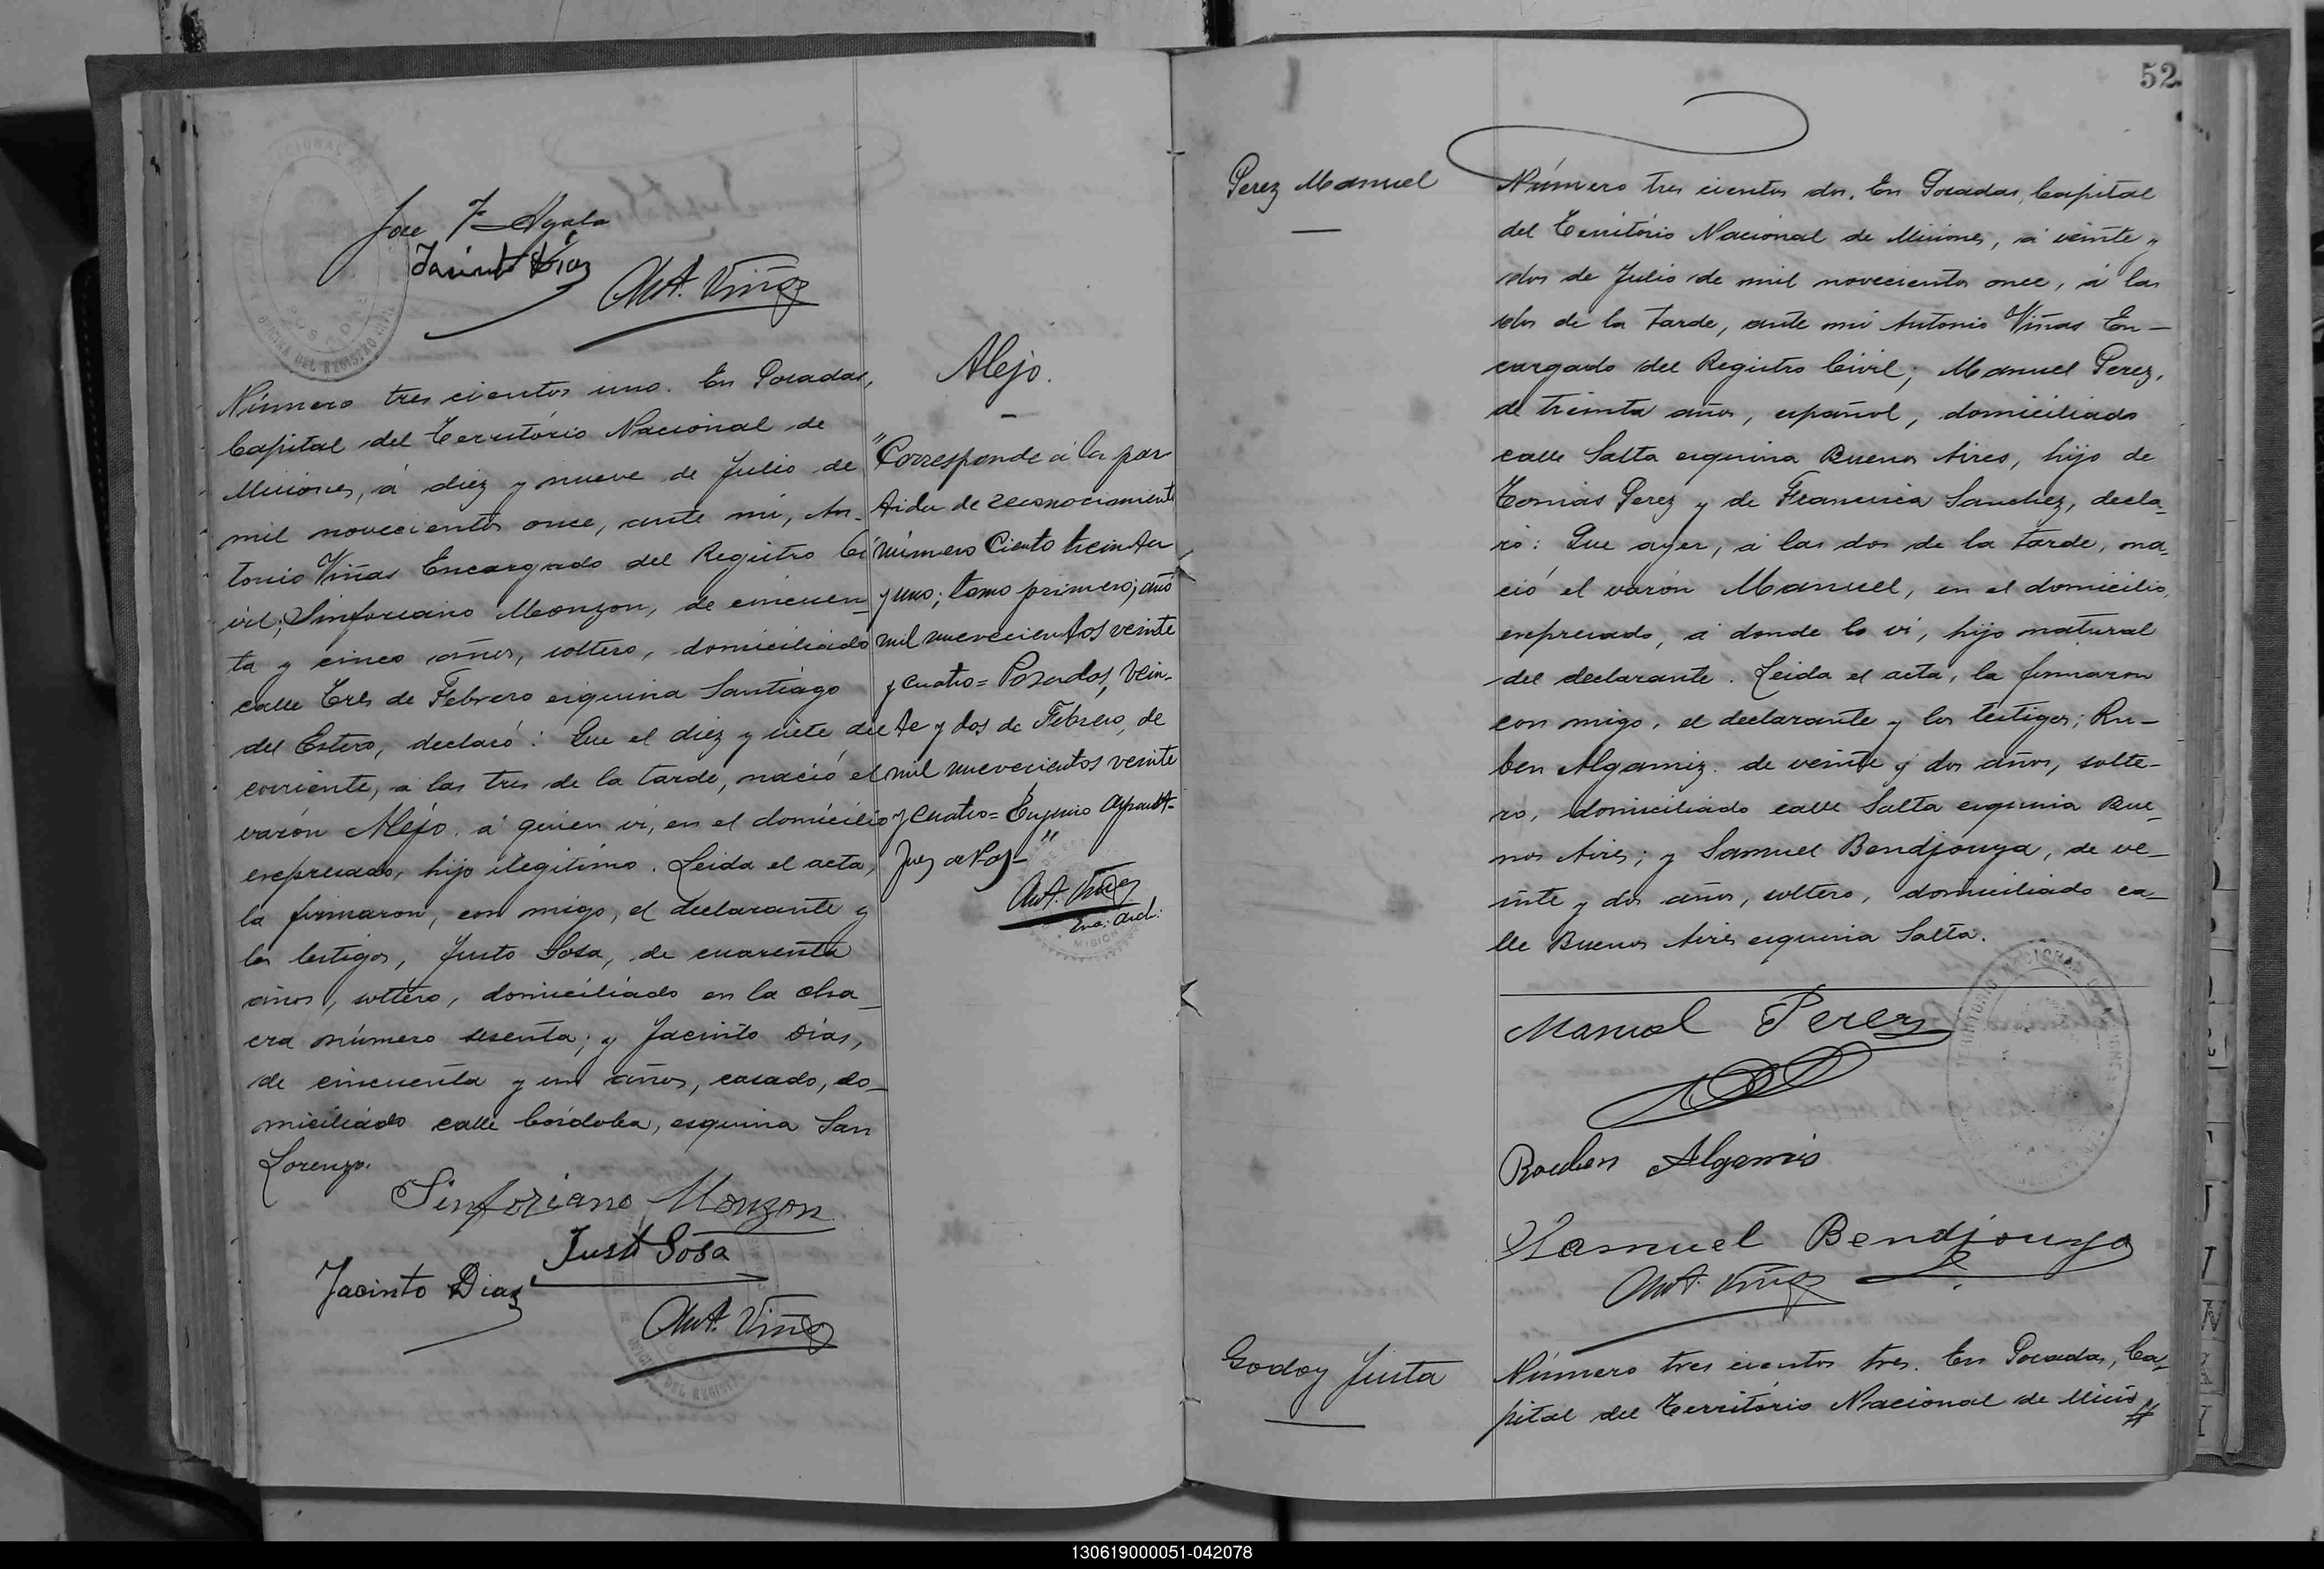 Jose F Ayala
Jacinto Diaz
Ant. Viñas
Número tres cientos uno. En Posadas,
Capital del Território Nacional de
Misiones, á diez y nueve de Julio de
mil novecientos once, ante mi, An-
tonio Viñas Encargado del Registro Ci
vil; Sinforiano Monzon, de cincuen_
ta y cinco años, soltero, domiciliado
calle Tres de Febrero esquina Santiago
del Estero, declaró: Que el diez y siete del
corriente, a las tres de la tarde, nació el
varón Alejo, a quien vi, en el domicilio
expresado, hijo ilegítimo. Leida el acta,
la firmaron, con migo, el declarante y
los testigos, Justo Sosa, de cuarenta
años, soltero, domiciliado en la cha_
cra número sesenta; y Jacinto Dias,
de cincuenta y un años, casado, do_
miciliado calle Córdoba, esquina San
Lorenzo.
Sinforiano Monzon
Justo Sosa
Jacinto Diaz
Ant. Viñas
Alejo.
"Corresponde á la par
tida de reconocimiento
número Ciento treinta
y uno; tomo primero; año
mil nuevecientos veinte
y cuatro = Posadas, vein-
te y dos de Febrero, de
mil nuevecientos veinte
y cuatro = Eugenio
Juez de Paz"
Ant. Viñas
Enc: Arch:
52
Perez Manuel
Número tres cientos dos. En Posadas, Capital
del Território Nacional de Misiones, á veinte y
dos de Julio de mil novecientos once, á las
dos de la tarde, ante mi Antonio Viñas En—
cargado del Registro Civil; Manuel Perez,
de treinta años, español, domiciliado
calle Salta esquina Buenos Aires, hijo de
Tomás Perez y de Francisca Sanchez, decla_
ró: Que ayer, á las dos de la tarde, na_
ció el varón Manuel, en el domicilio,
expresado, á donde lo vi, hijo natural
del declarante. Leida el acta, la firmaron
con migo, el declarante y los testigos; Ru—
ben Algamiz. de veinte y dos años, solte—
ro, domiciliado calle Salta esquina Bue_
nos Aires; y Samuel Bendjouya, de ve—
inte y dos años, soltero, domiciliado ca—
lle Buenos Aires esquina Salta.
Manuel Perez
Rouben Algamis
Samuel Bendjouya
Ant. Viñas
Godoy Justa
Número tres cientos tres. En Posadas, Ca_
pital del Território Nacional de Misio
130619000051-042078